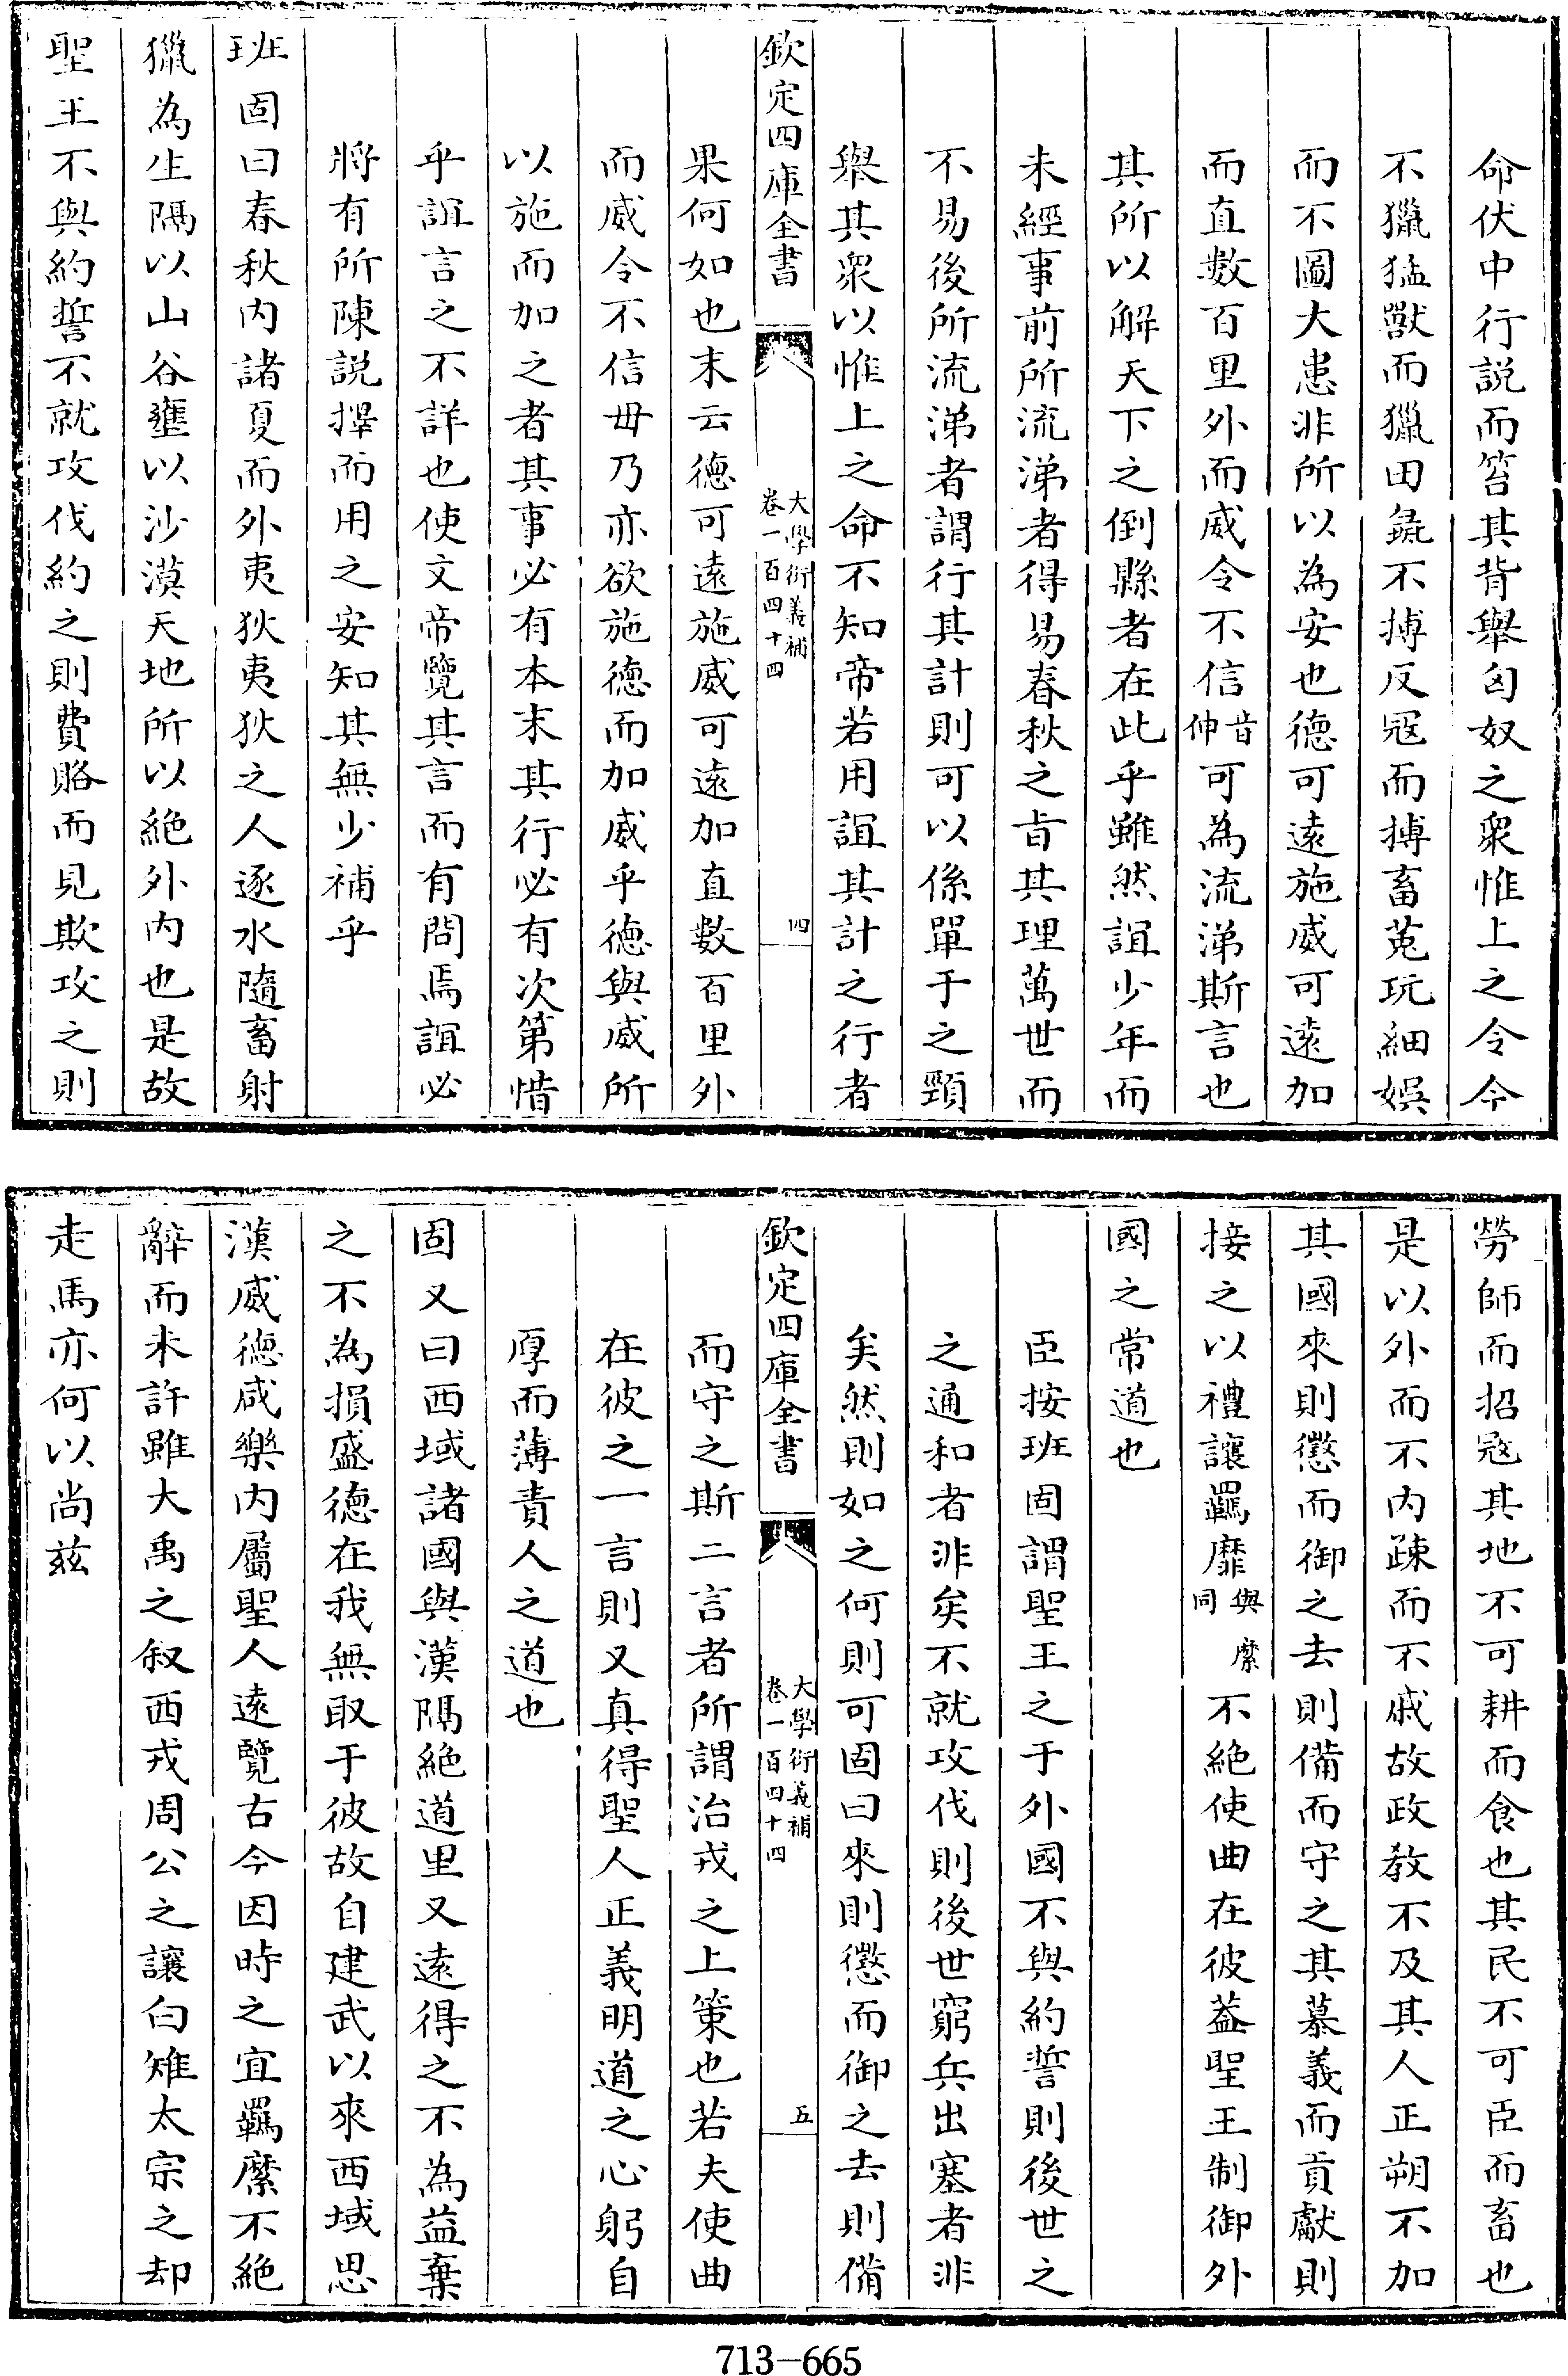 命伏中行説而笞其背舉匈奴之衆惟上之令今
不獵猛獸而獵田彘不搏反冦而搏畜菟玩細娯
而不圖大患非所以為安也德可遠施威可遠加
而直數百里外而威令不信音伸可為流涕斯言也
其所以解天下之倒縣者在此乎雖然誼少年而
未經事前所流涕者得易春秋之㫖其理萬世而
不易後所流涕者謂行其計則可以係單于之頸
舉其衆以惟上之命不知帝若用誼其計之行者
欽定四庫全書
大學衍義補
卷一百四十四
四
果何如也末云德可遠施威可遠加直數百里外
而威令不信毋乃亦欲施德而加威乎德與威所
以施而加之者其事必有本末其行必有次第惜
乎誼言之不詳也使文帝覽其言而有問焉誼必
將有所陳説擇而用之安知其無少補乎
班固曰春秋内諸夏而外夷狄夷狄之人逐水隨畜射
獵為生隔以山谷壅以沙漠天地所以絶外内也是故
聖王不與約誓不就攻伐約之則費賂而見欺攻之則
勞師而招冦其地不可耕而食也其民不可臣而畜也
是以外而不内疎而不戚故政教不及其人正朔不加
其國來則懲而御之去則備而守之其慕義而貢獻則
接之以禮讓羈靡與縻同不絶使曲在彼葢聖王制御外
國之常道也
臣按班固謂聖王之于外國不與約誓則後世之
之通和者非矣不就攻伐則後世窮兵出塞者非
矣然則如之何則可固曰來則懲而御之去則備
欽定四庫全書
大學衍義補
卷一百四十四
五
而守之斯二言者所謂治戎之上策也若夫使曲
在彼之一言則又真得聖人正義明道之心躬自
厚而薄責人之道也
固又曰西域諸國與漢隔絶道里又遠得之不為益棄
之不為損盛德在我無取于彼故自建武以來西域思
漢威德咸樂内屬聖人遠覽古今因時之宜羈縻不絶
辭而未許雖大禹之叙西戎周公之讓白雉太宗之却
走馬亦何以尚兹
713-665